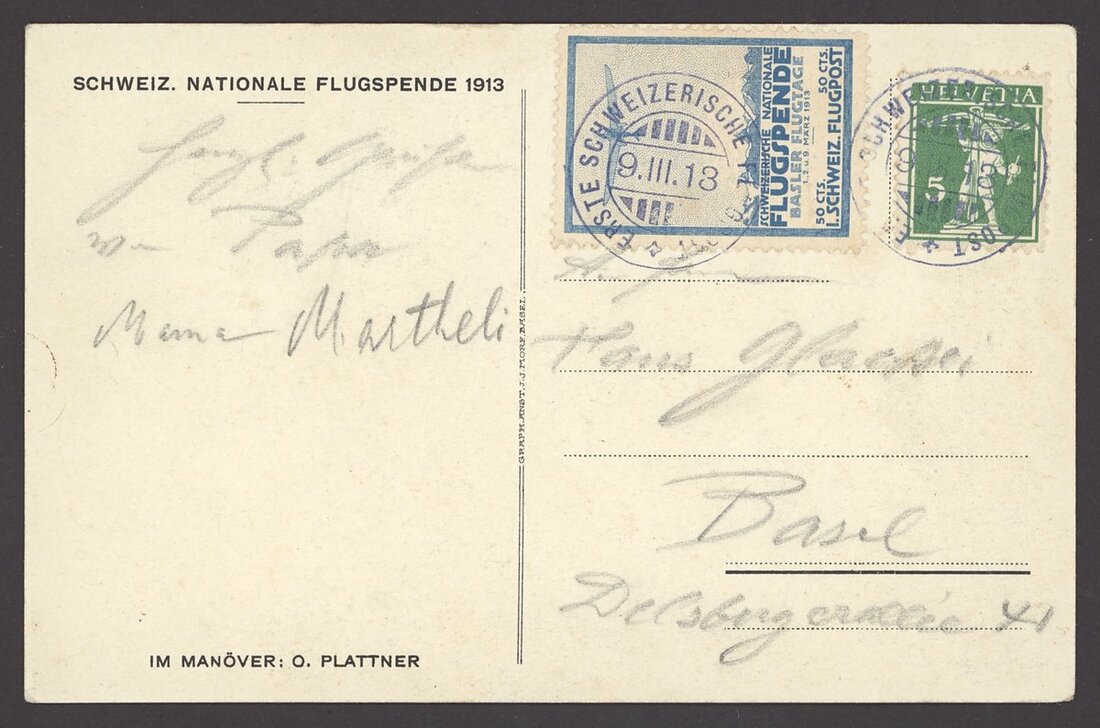 SCHWEIZ. NATIONALE FLUGSPENDE 1913
Herzl. Grüsse
von Papa
Mama Martheli
IM MANÖVER: O. PLATTNER
GRAPH. ANST. J. J. MORF, BASEL.
SCHWEIZERISCHE NATIONALE
FLUGSPENDE
BASLER FLUGTAGE
1. 2. U. 9. MÄRZ 1913
50 CTS. 50 CTS.
I. SCHWEIZ. FLUGPOST
ERSTE SCHWEIZERISCHE
9.III.13
HELVETIA
5
Hans
Basel
Delsbergerallee 41